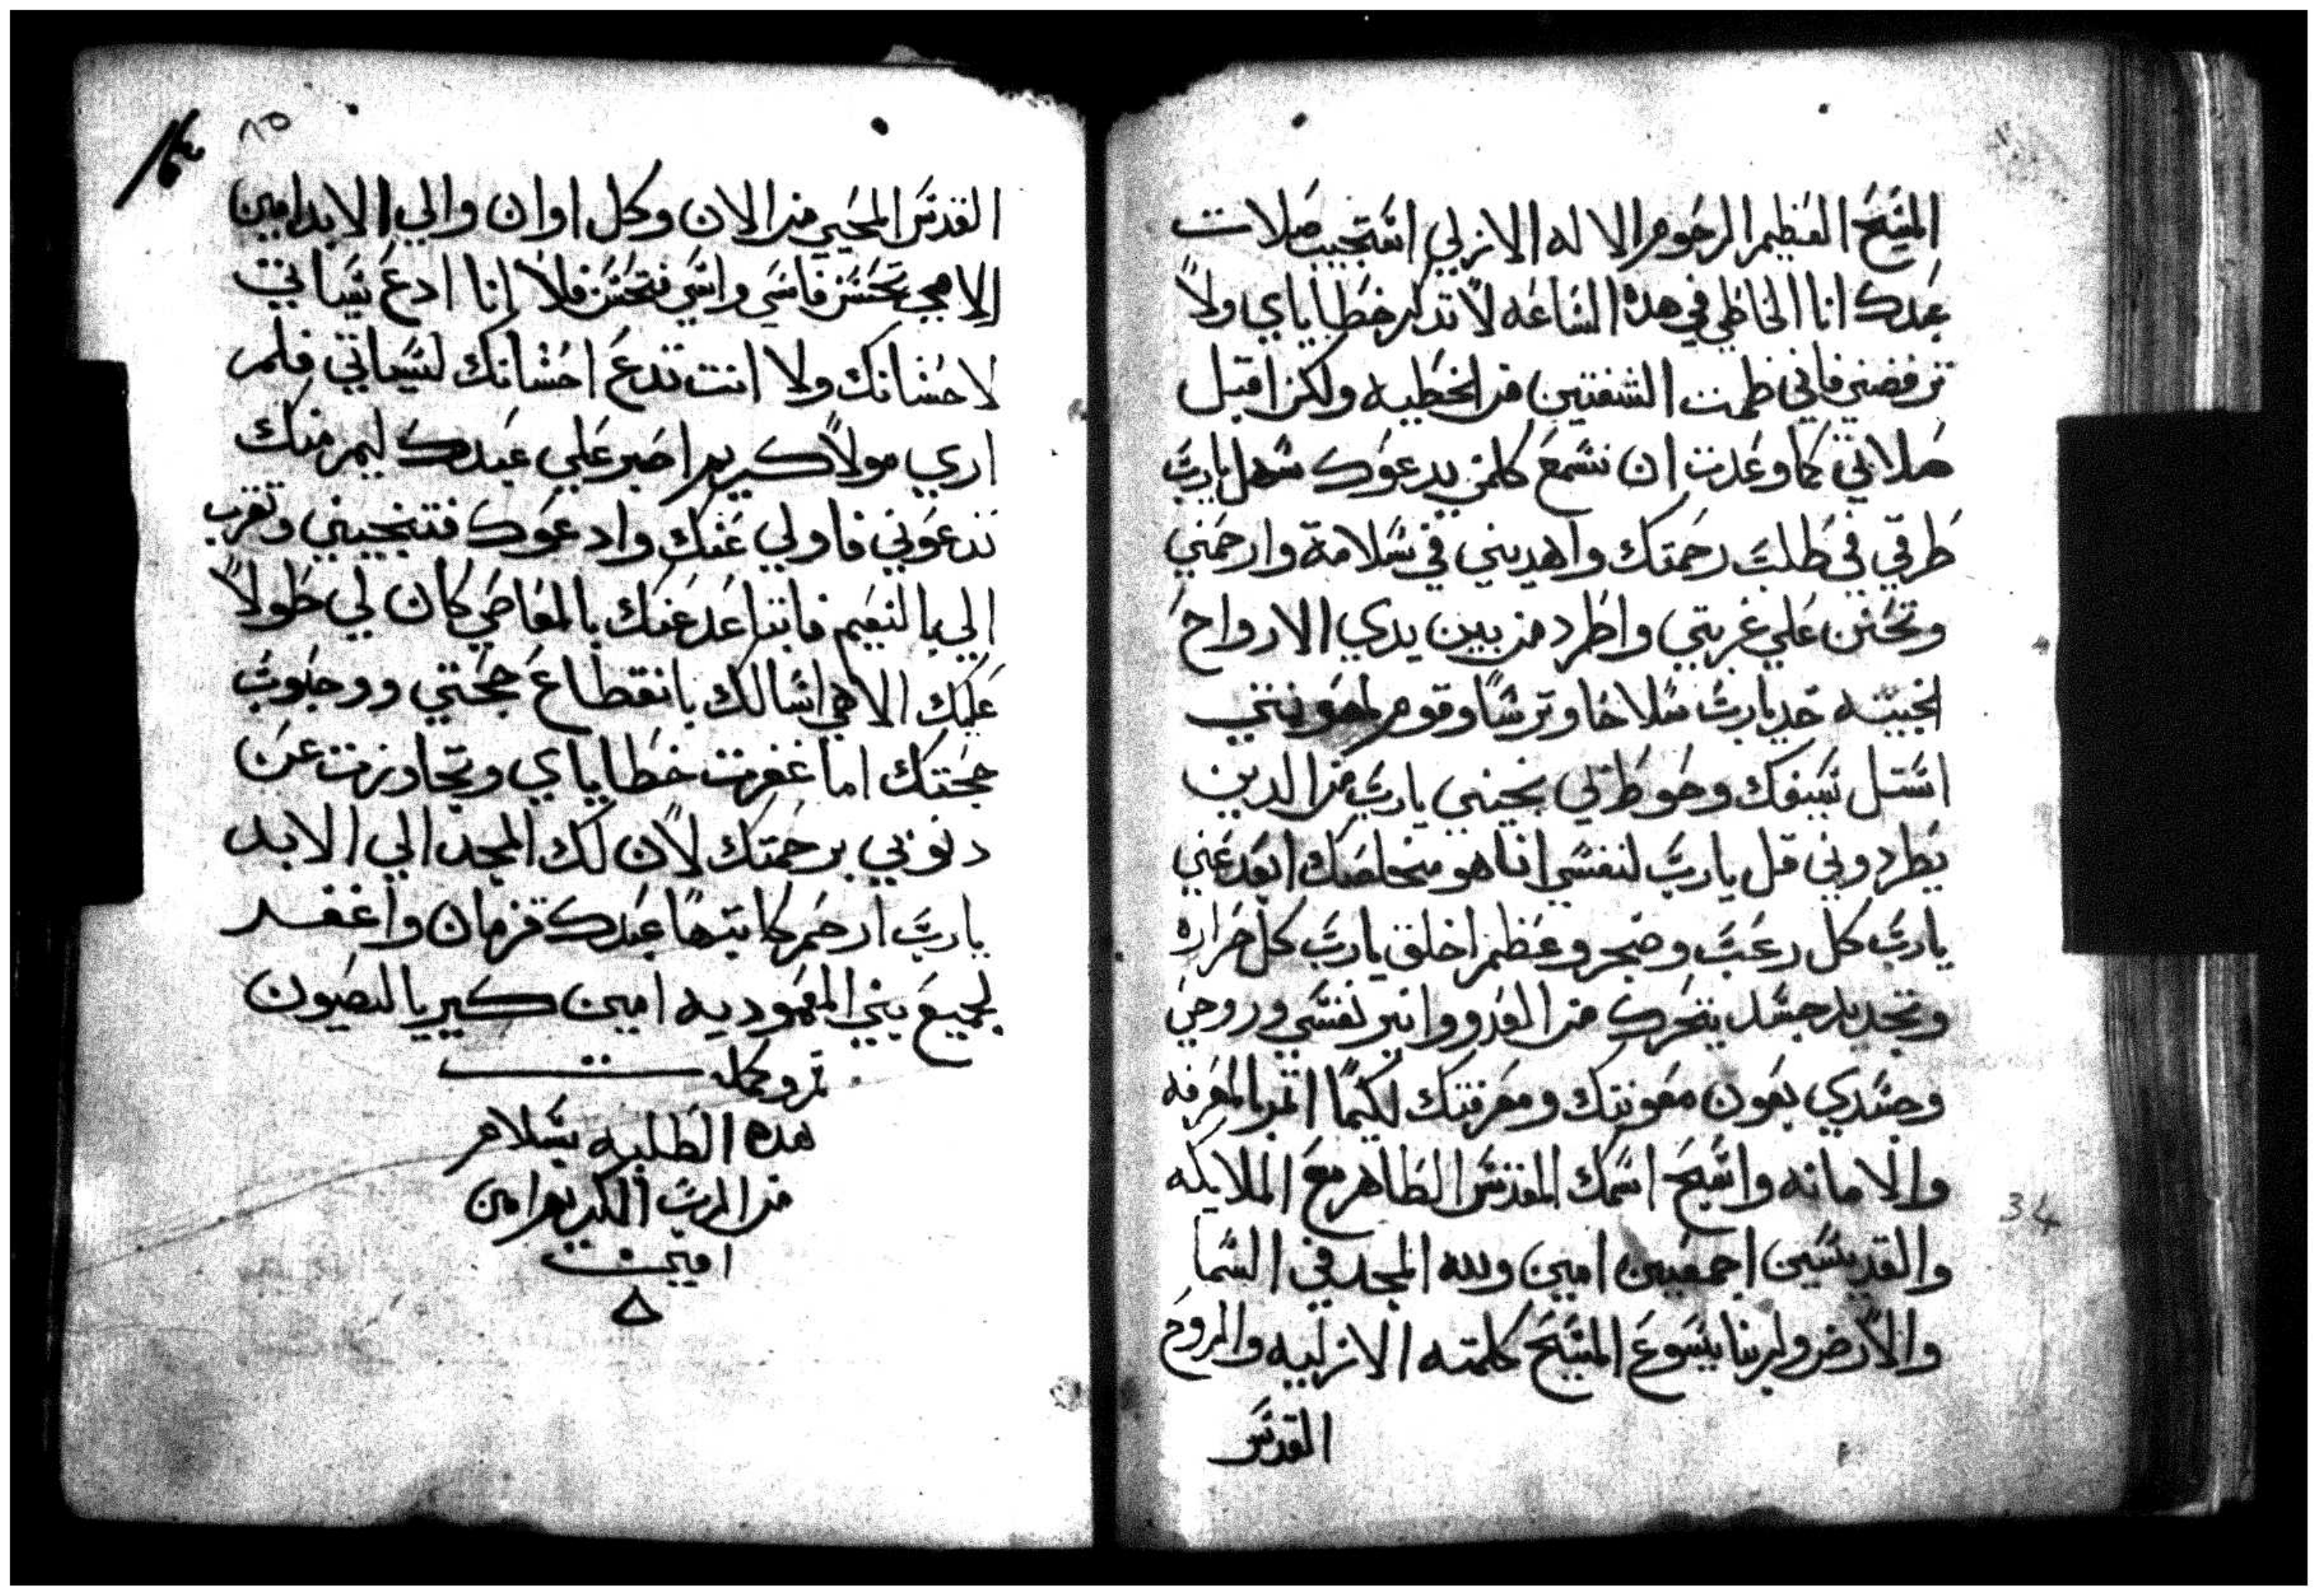 المسيح العظيم الرحوم الاله الازلي استجيب صلات
عبدك انا الخاطي في هده الساعه لا تدكر خطاياي ولا
ترفضني فاني طمت الشفتين من الخطيه ولكن اقبل
صلاتي كما وعدت ان تسمع كلمن يدعوك سهل يارب
طرقي في طلب رحمتك واهديني في سلامة وارحمني
وتحنن علي غربتي واطرد من بين يدي الارواح
الخبيثه خد يارب سلاحا وترسا وقوم لمعونتي
استل سيفك وحوط لي نجيني يارب من الدين
يطردوني قل يارب لنفسي انا هو مخلصك ابعد عني
يارب كل رعب وضجر وعظم اخلق يارب كل مراره
وتجديد جسد يتحرك من العدو وانير نفسي وروحي
وجسدي بعون معونتك ومعرفتك لكيما اتم بالمعرفه
والامانه واسبح اسمك المقدس الطاهر مع الملايكه
والقديسين اجمعين امين ولله المجد في السما
والارض ولربنا يسوع المسيح كلمته الازليه والروح
القدس
٨٥
القدس المحيي من الان وكل اوان والي الابد امين
الاهي تحسن فاسي واسي فتحسن فلا انا ادع سياتي
لاحسانك ولا انت تدع احسانك لسياتي فلم
اري مولا كريم اصبر علي عبدك ليم منك
تدعوني فاولي عنك وادعوك فتنجيني وتقرب
الي بالنعيم فانتباعد عنك بالمعاصي كان لي طولا
عليك الاهي اسالك بانقطاع حجتي ووجوب
حجتك اما غفرت خطاياي وتجاوزت عن
دنوبي برحمتك لان لك المجد الي الابد
يارب ارحم كاتبها عبدك قزمان واغفر
لجميع بني المعموديه امين كيرياليصون
تم وكمل
هده الطلبه بسلام
من الرب الكريم امين
امين